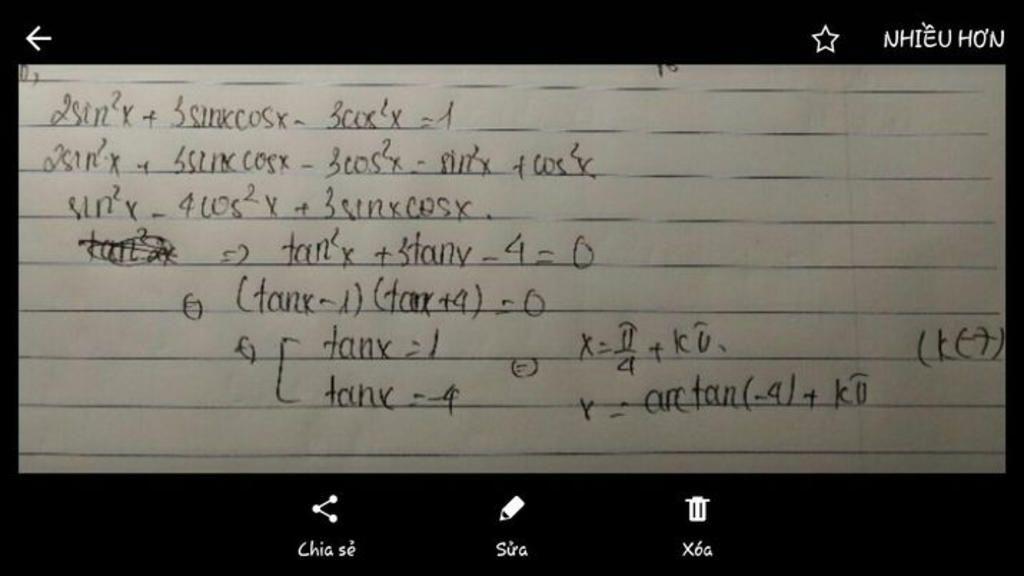 NHIỀU HƠN
2sin²x + 3sinxcosx - 3cos²x = 1
2sin²x + 3sinxcosx - 3cos²x = sin²x + cos²x
sin²x - 4cos²x + 3sinxcosx.
=> tan²x + 3tanx - 4 = 0
(tanx - 1)(tanx + 4) = 0
tanx = 1 x = π/4 + kπ.
tanx = -4 x = arctan(-4) + kπ
Chia sẻ Sửa Xóa